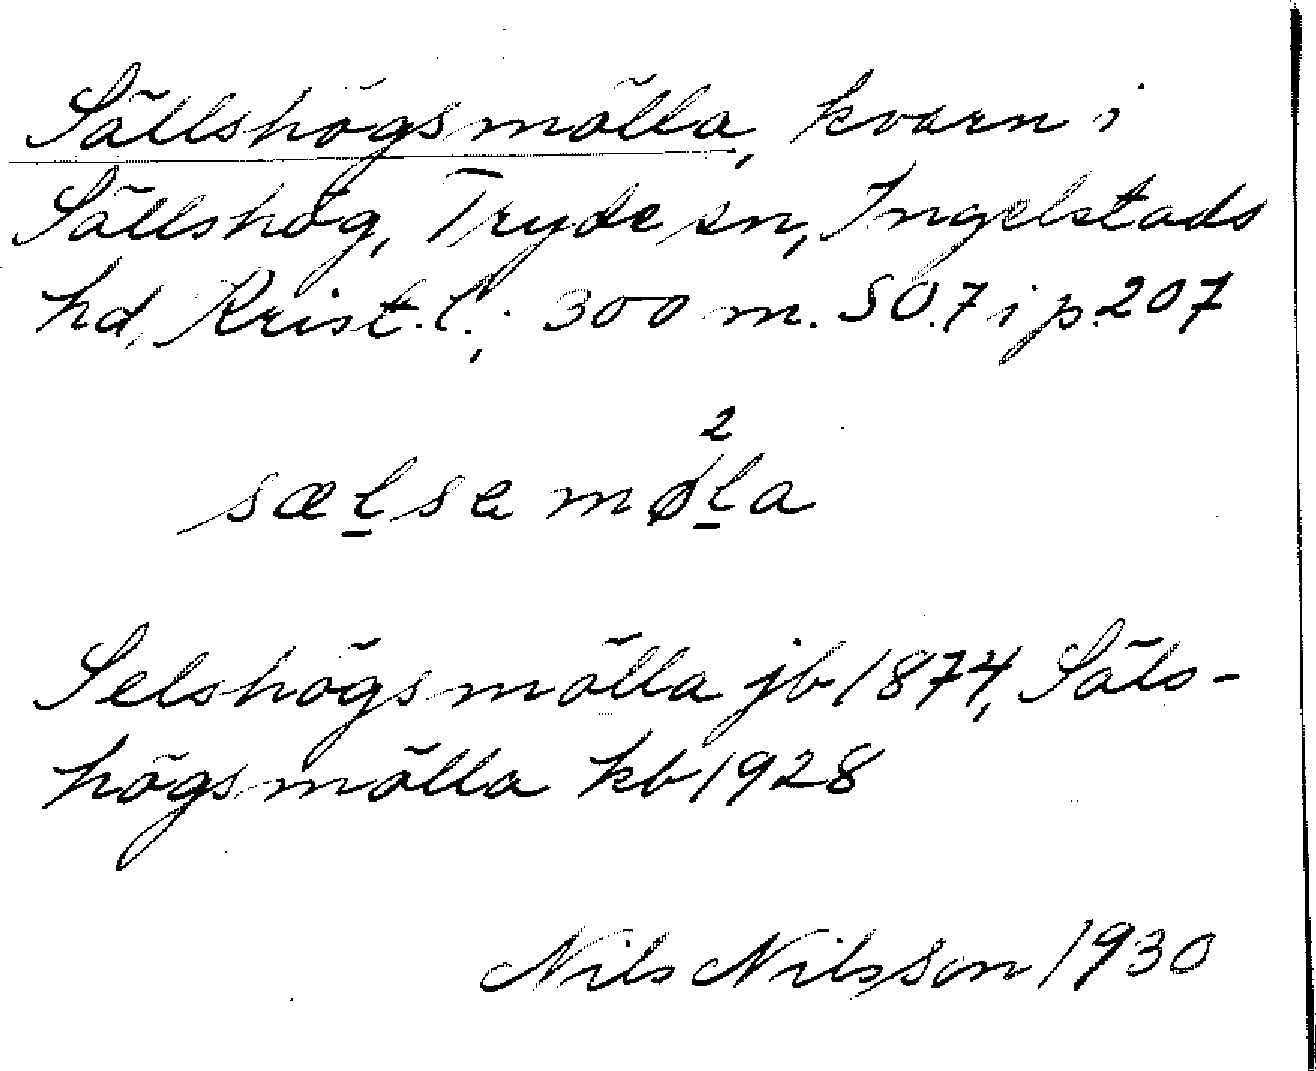 Sällshögsmölla, kvarn i
Sällshög, Tryde sn, Ingelstads
hd, Krist. l.; 300 m. SO. 7 i p. 207
2
sælsamøla
Selshögsmölla jb 1874, Säls-
högsmölla kb 1928
Nils Nilsson 1930